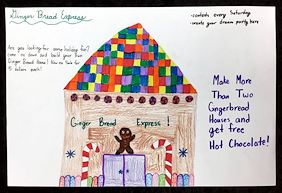 Ginger Bread Express
Are you looking for some holiday fun?
come on down and build your own
Ginger Bread House! Now on Sale for
15 dollars each!
-contests every Saturday
-create your dream party here
Ginger Bread Express!
Make More
Than Two
Gingerbread
Houses and
get free
Hot Chocolate!